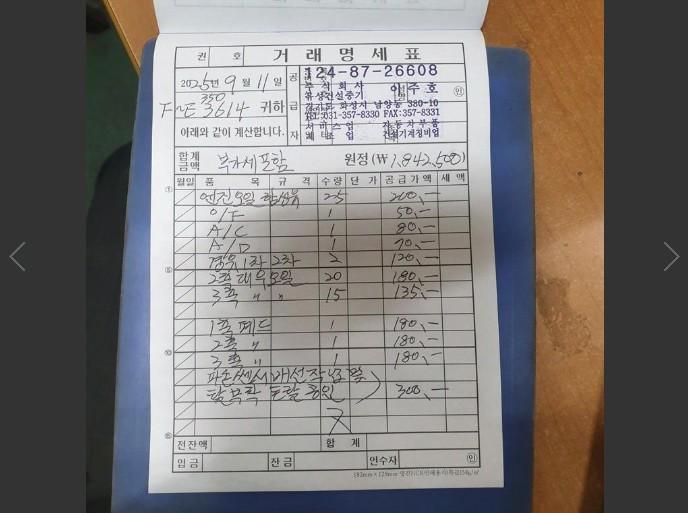 권 호 거래명세표
2025년 9월 11일
124-87-26608
주식회사 이주호 인
유성건설중기
경기도 화성시 남양동 380-10
TEL:031-357-8330 FAX:357-8331
서비스업 자동차부품
건설기계정비업
공급자
350
3614 귀하
아래와 같이 계산합니다.
합계금액 부가세포함 원정(₩1,842,500)
월일 품 목 규 격 수량 단 가 공급가액 세 액
엔진오일 합성유 25 200,—
O/F 1 50,—
A/C 1 80,—
A/D 1 70,—
경유 1차 2차 2 120,—
2축 대우오일 20 180,—
3축 〃 〃 15 135,—
1축 페드 1 180,—
2축 〃 1 180,—
3축 〃 1 180,—
파손 쎈서 배선작업 및
탈부착 토탈 공임 300,—
전잔액 합 계
입금 잔금 인수자 인